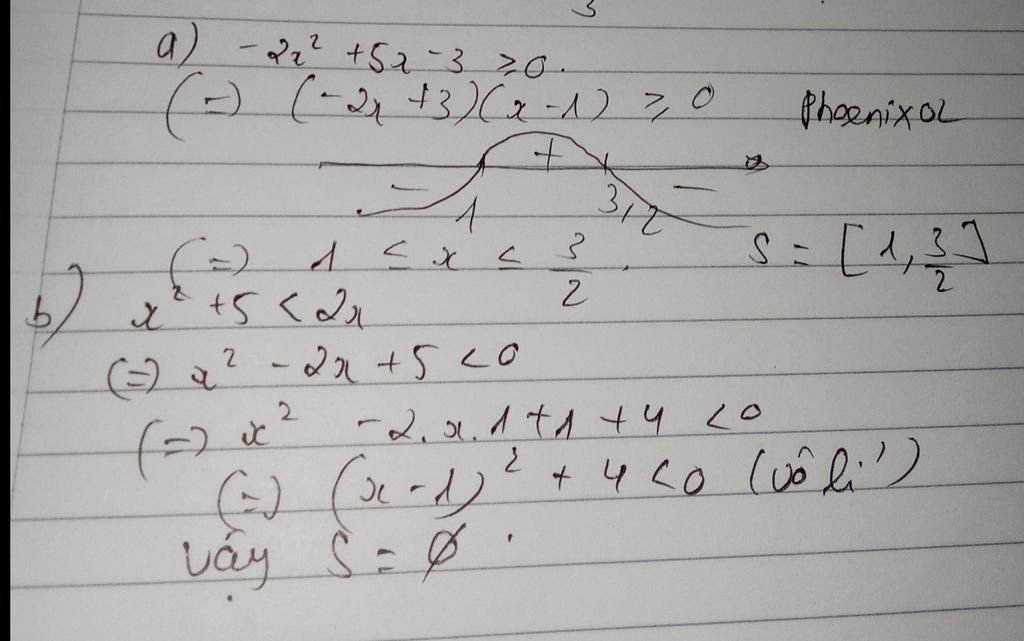 3
a) -2x² +5x -3 ≥0.
(=) (-2x +3)(x -1) ≥ 0
Phoenixoz
- + -
1 3,2
(=) 1 ≤ x ≤ 3/2. S = [1, 3/2]
b) x² +5 < 2x
(=) x² - 2x + 5 <0
(=) x² -2. x. 1 +1 + 4 <0
(=) (x -1)² + 4 <0 (vô lí)
Vậy S = ∅.